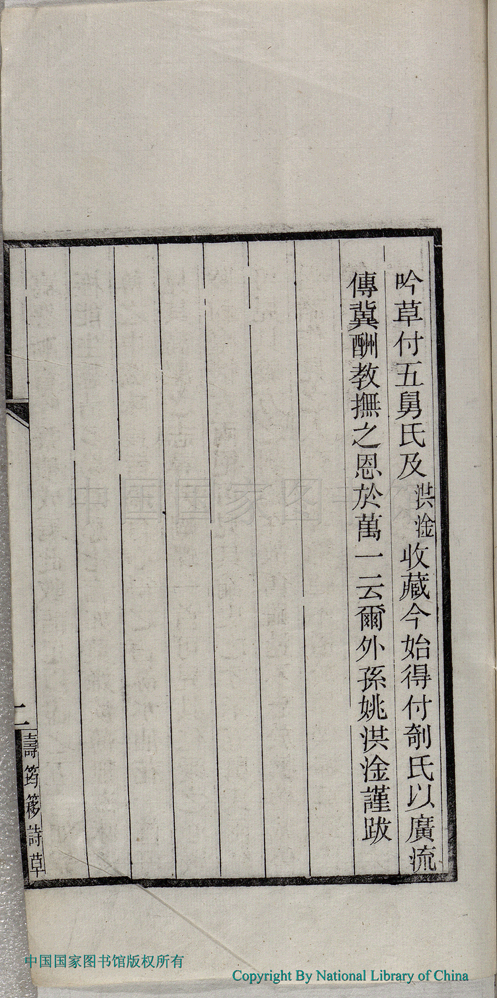 吟草付五舅氏及洪淦收藏今始得付剞氏以廣流
傳冀酬教撫之恩於萬一云爾外孫姚洪淦謹跋
二
壽筠簃詩草
中国国家图书馆
中国国家图书馆版权所有
Copyright By National Library of China